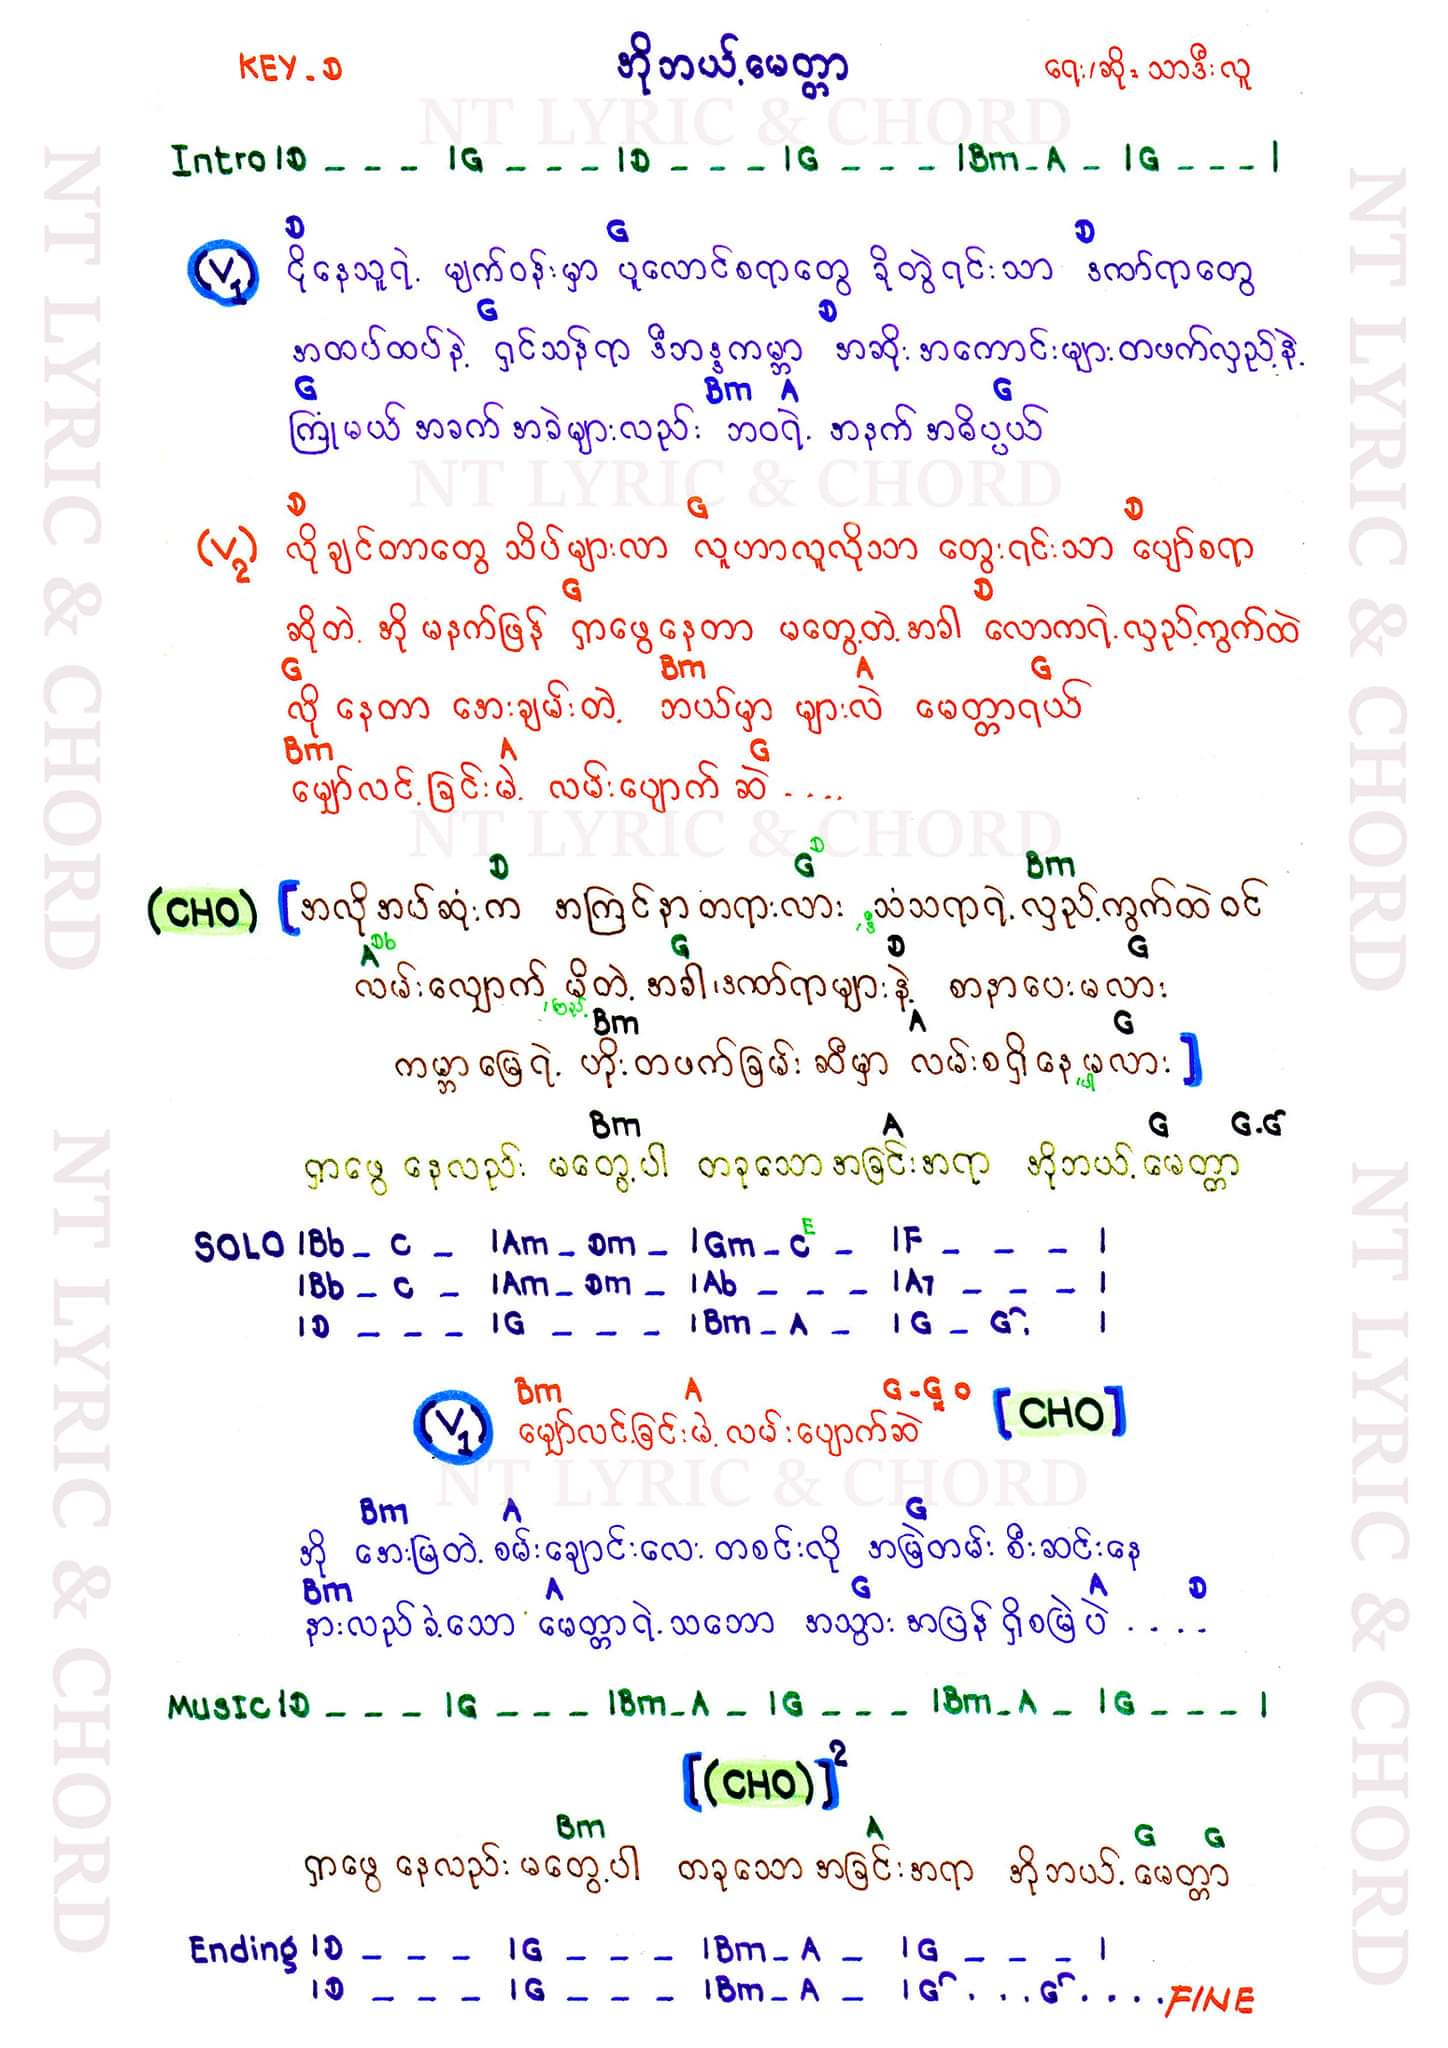 KEY-D အိုဘယ့်မေတ္တာ ရေး/ဆို း သာဒီးလူ
NT LYRIC & CHORD
Intro |D _ _ _ |G _ _ _ |D _ _ _ |G _ _ _ |Bm _ A _ |G _ _ _ |
D G D
V1 ငိုနေသူရဲ့ မျက်ဝန်းမှာ ပူလောင်စရာတွေ ခိုတွဲရင်းသာ ဒဏ်ရာတွေ
G D
အထပ်ထပ်နဲ့ ရှင်သန်ရာ ဒီဘဒ္ဒကမ္ဘာ အဆိုးအကောင်းများတဖက်လှည့်နဲ့
G Bm A G
ကြုံမယ် အခက်အခဲများလည်း ဘဝရဲ့ အနက်အဓိပ္ပယ်
NT LYRIC & CHORD
D G D
(V2) လိုချင်တာတွေ သိပ်များလာ လူဟာလူလိုသာ တွေးရင်းသာ ပျော်စရာ
G D
ဆိုတဲ့ အို မနက်ဖြန် ရှာဖွေနေတာ မတွေ့တဲ့အခါ လောကရဲ့လှည့်ကွက်ထဲ
G Bm A G
လို နေတာ အေးချမ်းတဲ့ ဘယ်မှာ များလဲ မေတ္တာရယ်
Bm A G
မျှော်လင့်ခြင်းမဲ့ လမ်းပျောက်ဆဲ ....
NT LYRIC & CHORD
D G D Bm
(CHO) [အလိုအပ်ဆုံးက အကြင်နာတရားလား ဒီ သံသရာရဲ့လှည့်ကွက်ထဲဝင်
A Db G D G
လမ်းလျှောက်မိတဲ့အခါ ဒဏ်ရာများနဲ့ စာနာပေးမလား
Bm A G
ကမ္ဘာမြေရဲ့ ဟိုးတဖက်ခြမ်းဆီမှာ လမ်းစရှိနေမလား]
Bm A G G.G
ရှာဖွေ နေလည်း မတွေ့ပါ တခုသောအခြင်းအရာ အိုဘယ့်မေတ္တာ
SOLO |Bb _ C _ |Am _ Dm _ |Gm _ C E _ |F _ _ _ |
|Bb _ C _ |Am _ Dm _ |Ab _ _ _ |A7 _ _ _ |
|D _ _ _ |G _ _ _ |Bm _ A _ |G _ G. |
Bm A G-G
V1 မျှော်လင့်ခြင်းမဲ့ လမ်းပျောက်ဆဲ [CHO]
NT LYRIC & CHORD
Bm A G
အို အေးမြတဲ့ စမ်းချောင်းလေး တစင်းလို အမြဲတမ်း စီးဆင်းနေ
Bm A G A D
နားလည်ခဲ့သော မေတ္တာရဲ့သဘော အသွားအပြန်ရှိစမြဲပဲ ....
Music |D _ _ _ |G _ _ _ |Bm _ A _ |G _ _ _ |Bm _ A _ |G _ _ _ |
[(CHO)]2
Bm A G G
ရှာဖွေ နေလည်း မတွေ့ပါ တခုသောအခြင်းအရာ အိုဘယ့်မေတ္တာ
Ending |D _ _ _ |G _ _ _ |Bm _ A _ |G _ _ _ |
|D _ _ _ |G _ _ _ |Bm _ A _ |G . . . G . . . . FINE
NT LYRIC & CHORD
NT LYRIC & CHORD
NT LYRIC & CHORD
NT LYRIC & CHORD